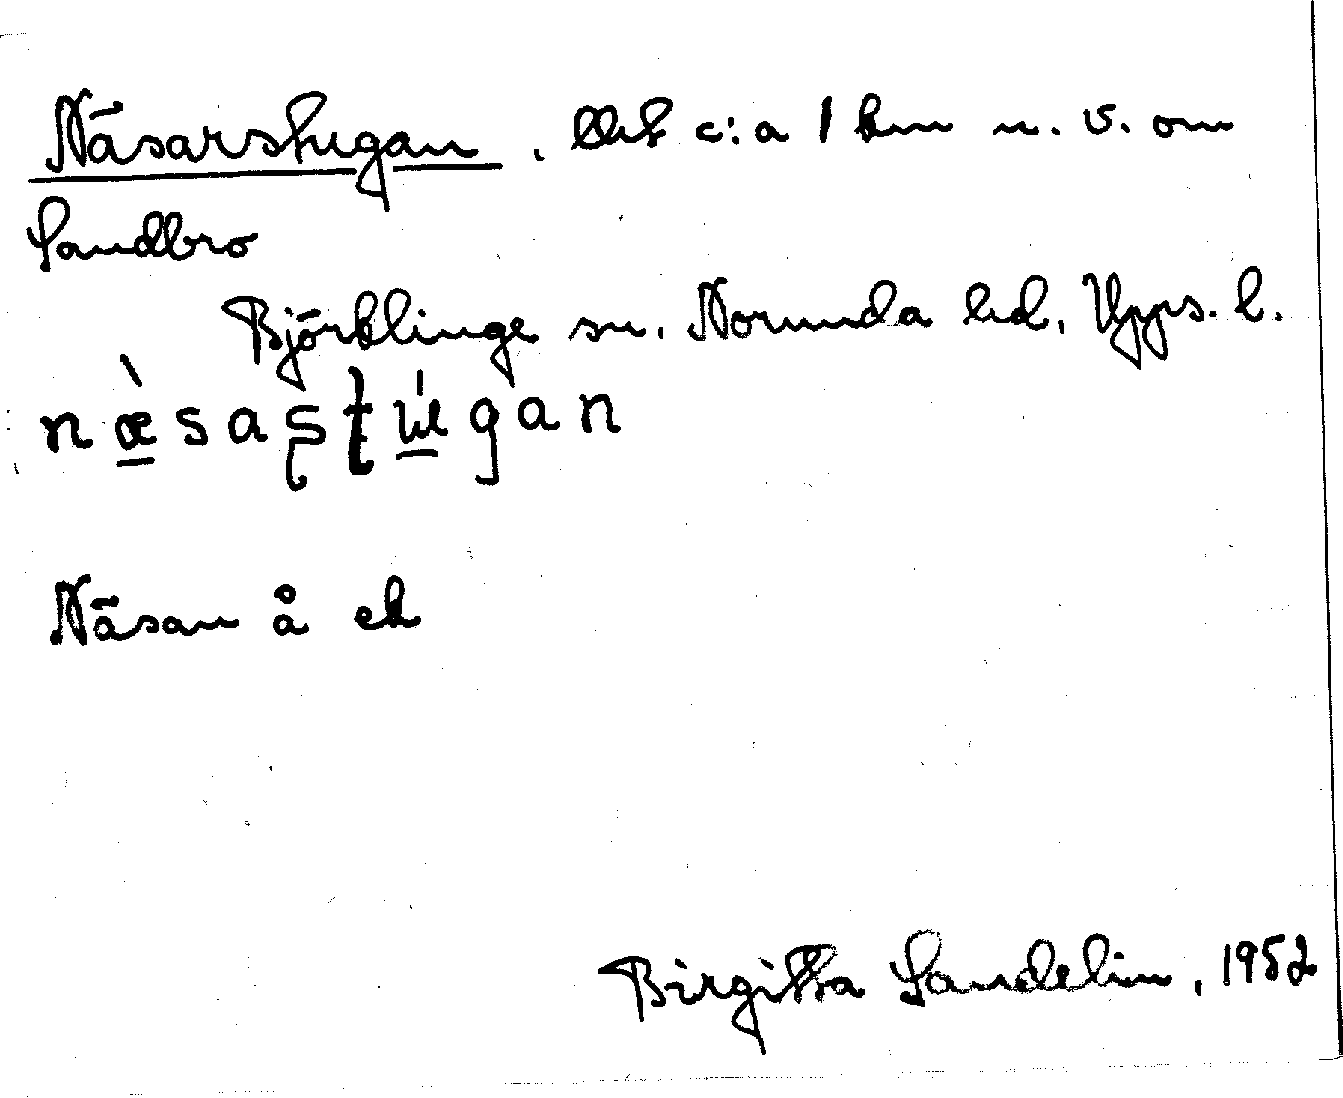 Näsarstugan. Ort c:a 1 km n. v. om
Sandbro
Björklinge sn. Norunda hd. Upps. l.
næ̀saʂtu̍gan
Näsan å ek
Birgitta Sandelin, 1952